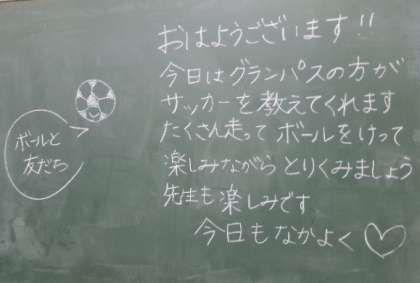 おはようございます!!
今日はグランパスの方が
サッカーを教えてくれます
たくさん走って ボールをけって
楽しみながら とりくみましょう
先生も楽しみです
今日もなかよく♡
ボールと
友だち